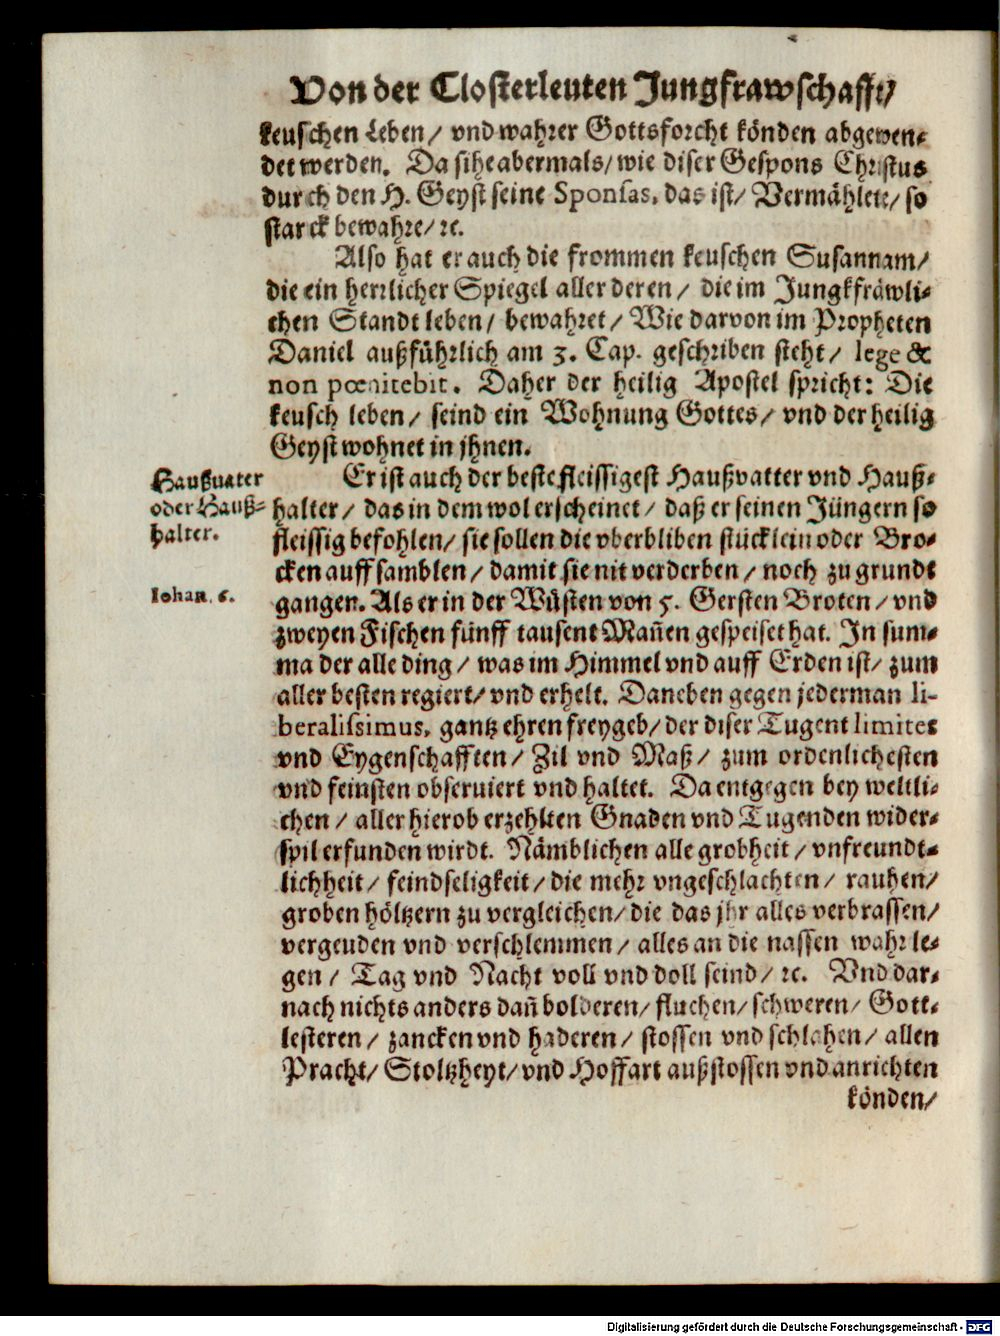 Von der Closterleuten Jungfrawschafft/
keuschen Leben/ vnd wahrer Gottsforcht könden abgewen-
det werden. Da sihe abermals/ wie diser Gespons Christus
durch den H. Geyst seine Sponsas, das ist/ Vermählete/ so
starck bewahre/ ꝛc.
Also hat er auch die frommen keuschen Susannam/
die ein herrlicher Spiegel aller deren/ die im Jungkfräwli-
chen Standt leben/ bewahret/ Wie darvon im Propheten
Daniel außführlich am 3. Cap. geschriben steht/ lege &
non pœnitebit. Daher der heilig Apostel spricht: Die
keusch leben/ seind ein Wohnung Gottes/ vnd der heilig
Geyst wohnet in jhnen.
Haußuater
oder Hauß-
halter.
Er ist auch der beste fleissigest Haußvatter vnd Hauß-
halter/ das in dem wol erscheinet/ daß er seinen Jüngern so
fleissig befohlen/ sie sollen die vberbliben stücklein oder Bro-
cken auff samblen/ damit sie nit verderben/ noch zu grundt
Iohan. 6.
gangen. Als er in der Wüsten von 5. Gersten Broten/ vnd
zweyen Fischen fünff tausent Mañen gespeiset hat. In sum-
ma der alle ding/ was im Himmel vnd auff Erden ist/ zum
aller besten regiert/ vnd erhelt. Daneben gegen jederman li-
beralissimus, gantz ehren freygeb/ der diser Tugent limites
vnd Eygenschafften/ Zil vnd Maß/ zum ordenlichesten
vnd feinsten obseruiert vnd haltet. Da entgegen bey weltli-
chen/ aller hierob erzehlten Gnaden vnd Tugenden wider-
spil erfunden wirdt. Nämblichen alle grobheit/ vnfreundt-
lichheit/ feindseligkeit/ die mehr vngeschlachten/ rauhen/
groben höltzern zu vergleichen/ die das jhr alles verbrassen/
vergeuden vnd verschlemmen/ alles an die nassen wahr le-
gen/ Tag vnd Nacht voll vnd doll seind/ ꝛc. Vnd dar-
nach nichts anders dañ bolderen/ fluchen/ schweren/ Gott-
lesteren/ zancken vnd haderen/ stossen vnd schlahen/ allen
Pracht/ Stoltzheyt/ vnd Hoffart außstossen vnd anrichten
könden/
Digitalisierung gefördert durch die Deutsche Forschungsgemeinschaft - DFG